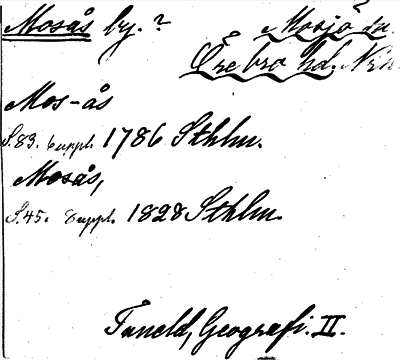 Mosås by.? Mosjö sn.
Örebro hd. Nrk
Mos-ås
S.83. 6 uppl. 1786 Sthlm.
Mosås,
S.45. 8 uppl. 1828 Sthlm.
Tuneld, Geografi. II.